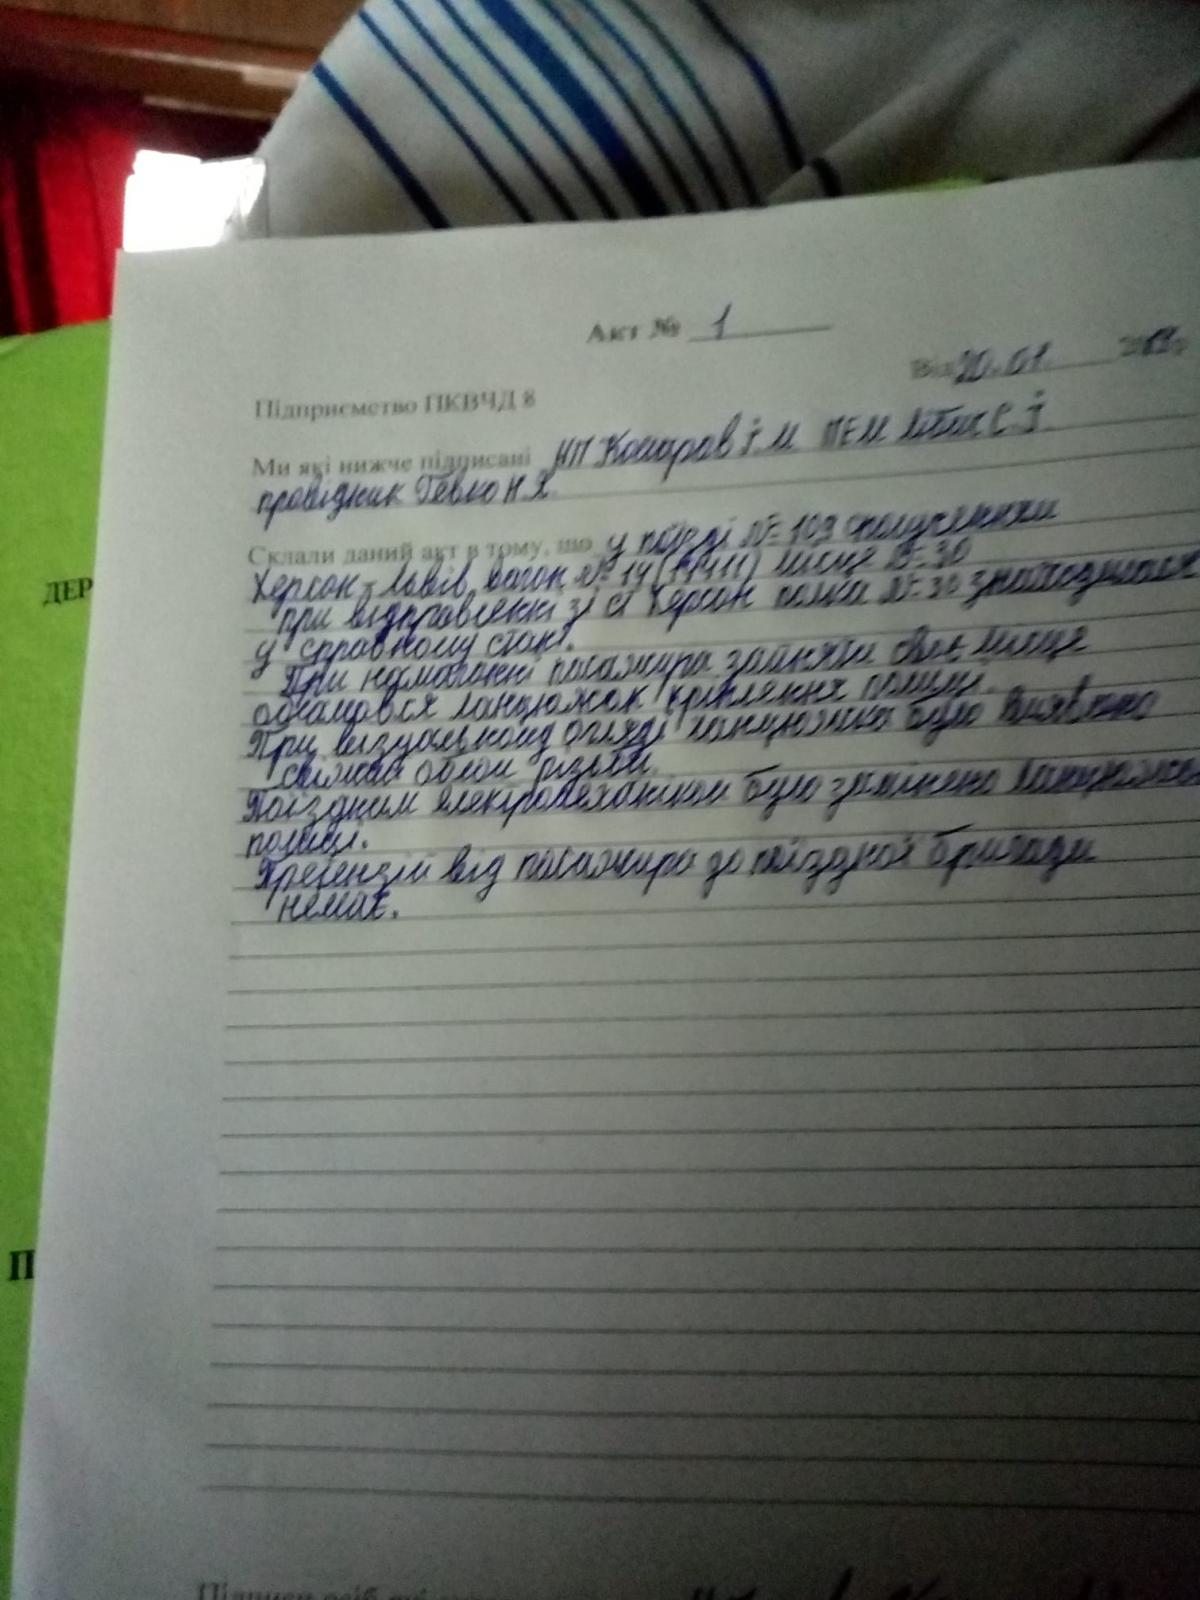 Акт № 1
Від 20.01.
Підприємство ПКВЧД 8
Ми які нижче підписані НП Комаров І.М ПЕМ С.І.
провідник Гевко Н.Я.
Склали даний акт в тому, що у поїзді № 109 сполученням
Херсон-Львів вагон № 14 місце № 30
при відправленні зі ст Херсон полка № 30 знаходилась
у справному стані.
При намаганні пасажира зайняти своє місце
обламався ланцюжок кріплення полиці.
При візуальному огляді ланцюжка було виявлено
свіжий облом різьби.
Поїздним електромеханіком було замінено
полиці.
Претензій від пасажира до поїздної бригади
немає.
ДЕР
П